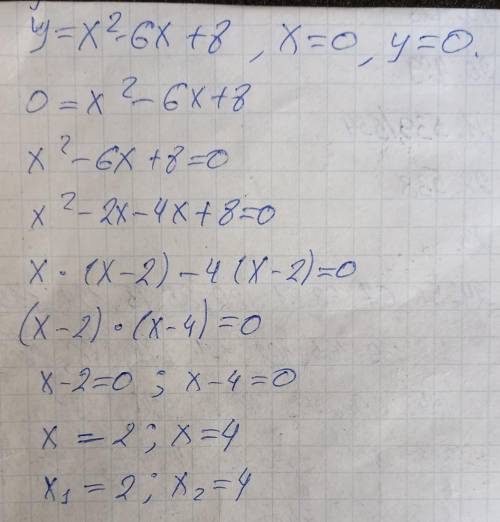 y=x²-6x+8, x=0, y=0.
0=x²-6x+8
x²-6x+8=0
x²-2x-4x+8=0
x·(x-2)-4(x-2)=0
(x-2)·(x-4)=0
x-2=0; x-4=0
x=2; x=4
x₁=2; x₂=4